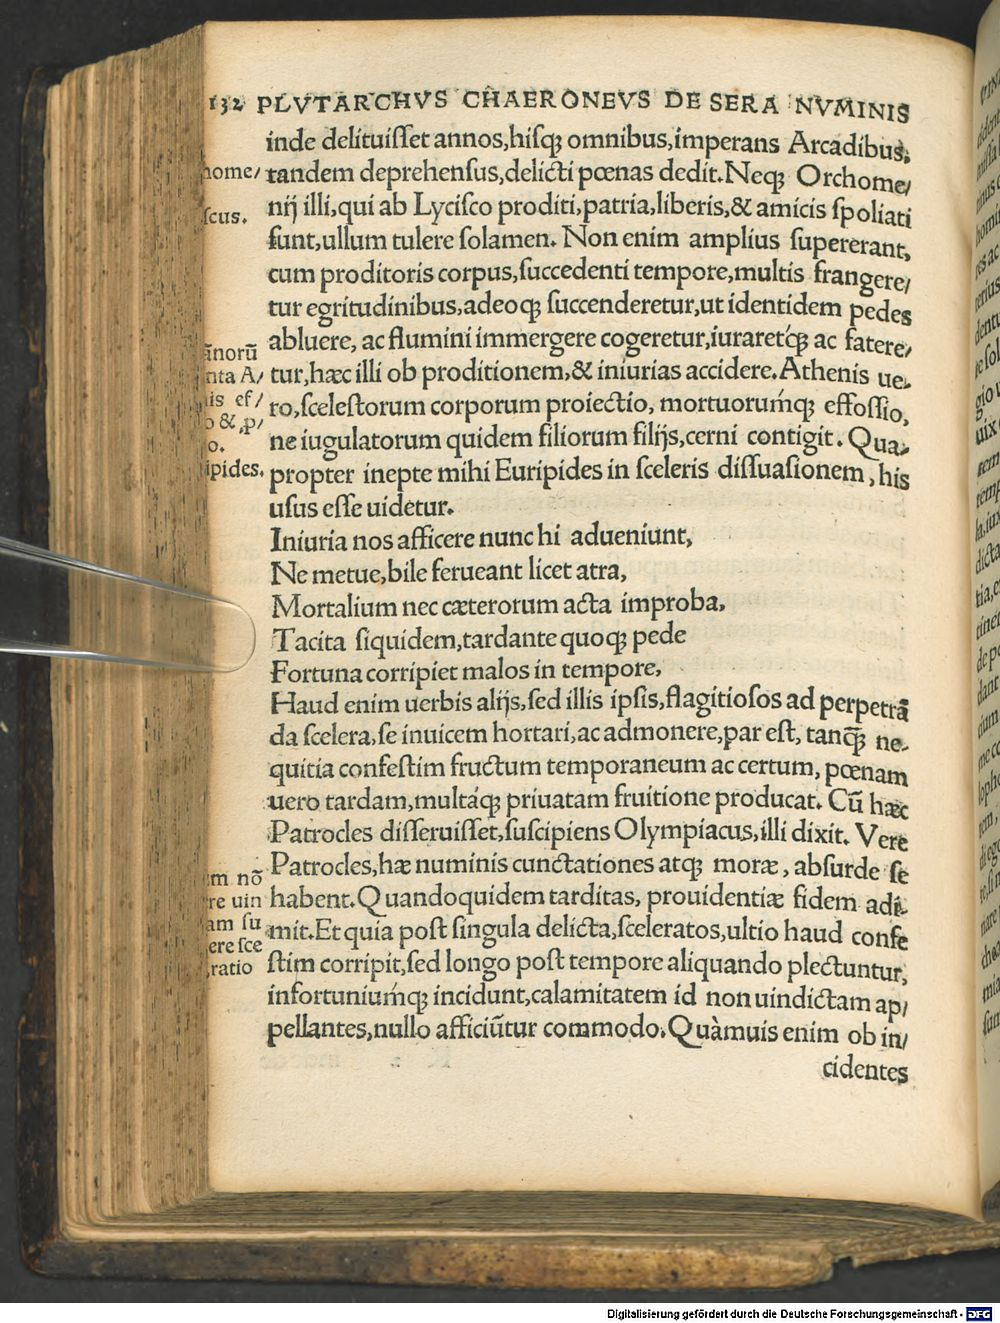 132 PLVTARCHVS CHAERONEVS DE SERA NVMINIS
inde delituiſſet annos,hiſq; omnibus,imperans Arcadibus,
tandem deprehenſus,delicti pœnas dedit.Neq; Orchome/
nĳ illi,qui ab Lyciſco proditi,patria,liberis,& amicis ſpoliati
ſunt,ullum tulere ſolamen. Non enim amplius ſupererant,
cum proditoris corpus,ſuccedenti tempore,multis frangere/
tur egritudinibus,adeoq; ſuccenderetur,ut identidem pedes
abluere, ac flumini immergere cogeretur,iuraretq́; ac fatere/
tur,hæc illi ob proditionem,& iniurias accidere.Athenis ue/
ro,ſceleſtorum corporum proiectio, mortuorumq́; effoſſio,
ne iugulatorum quidem filiorum filĳs,cerni contigit. Qua/
propter inepte mihi Euripides in ſceleris diſſuaſionem, his
uſus eſſe uidetur.
Iniuria nos afficere nunc hi adueniunt,
Ne metue,bile ferueant licet atra,
Mortalium nec cæterorum acta improba,
Tacita ſiquidem,tardante quoq; pede
Fortuna corripiet malos in tempore,
Haud enim uerbis alĳs,ſed illis ipſis,flagitioſos ad perpetrā
da ſcelera,ſe inuicem hortari,ac admonere,par eſt, tanq̄; ne/
quitia confeſtim fructum temporaneum ac certum, pœnam
uero tardam,multáq; priuatam fruitione producat. Cū hæc
Patrocles diſſeruiſſet,ſuſcipiens Olympiacus,illi dixit. Vere
Patrocles,hæ numinis cunctationes atq; moræ, abſurde ſe
habent.Quandoquidem tarditas, prouidentiæ fidem adi/
mit.Et quia poſt ſingula delicta,ſceleratos,ultio haud confe
ſtim corripit,ſed longo poſt tempore aliquando plectuntur,
infortuniumq́; incidunt,calamitatem id non uindictam ap/
pellantes,nullo afficiūtur commodo.Quàmuis enim ob in/
cidentes
home/
ſcus.
ānorū
nta A/
is ef/
o & ,p/
o.
ipides.
m nō
re uin
am ſu
ere ſce
ratio
Digitalisierung gefördert durch die Deutsche Forschungsgemeinschaft - DFG